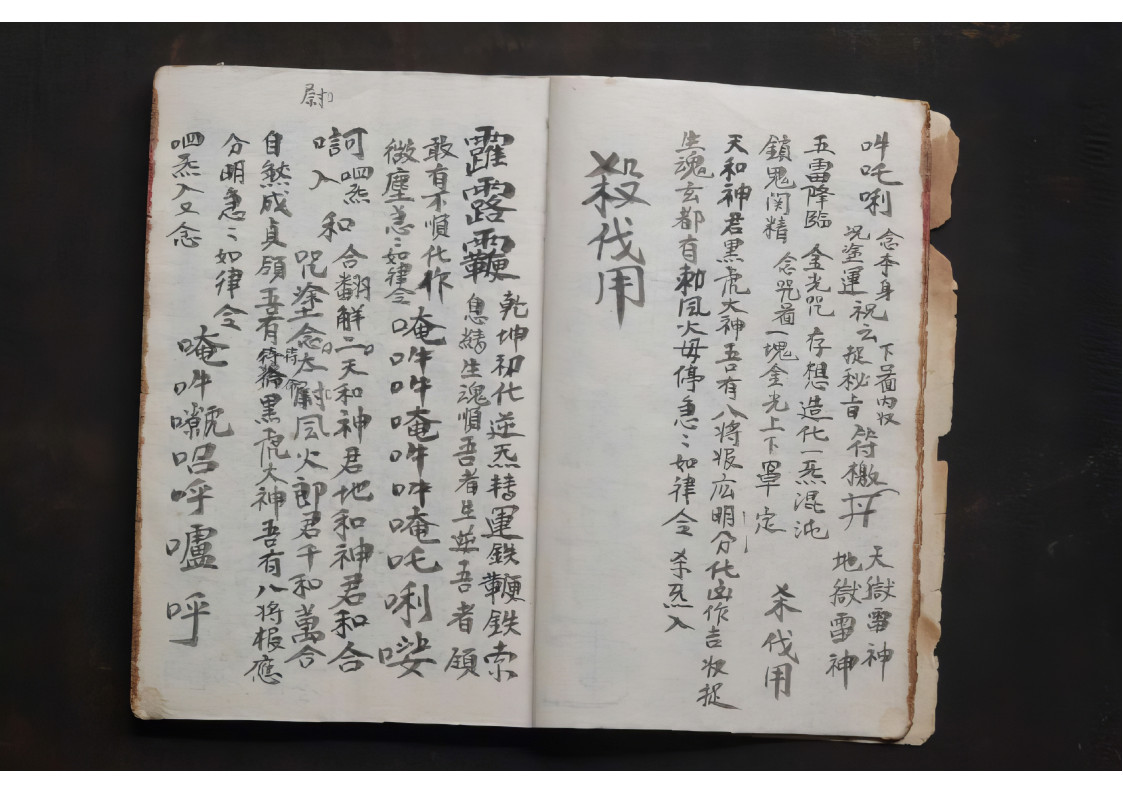 吽吒唎 念本身 下畐内收
咒塗運祝云捉秘旨符檄
天獄雷神
地獄雷神
五雷降臨 金光咒 存想造化一炁混沌
鎖鬼関精 念咒畐一塊金光上下罩定 杀伐用
天和神君黒虎大神吾有八将报应明分化凶作吉收捉
生魂玄都有勅風火毋停急〻如律令 杀炁入
殺伐用
躍露鞭 乾坤初化逆炁轉運鉄鞭鉄索
息精生魂順吾者生逆吾者
敢有不順化作
微塵急〻如律令 唵吽吽唵吽吽唵吒唎
訶呬炁和合翻解二天和神君地和神君和合
入 咒塗念太尉風火郎君千和萬合
尉
自然成貞領吾有 黒虎大神吾有八将报應
分明急〻如律令 唵吽 呂呼嚧呼
呬炁入又念